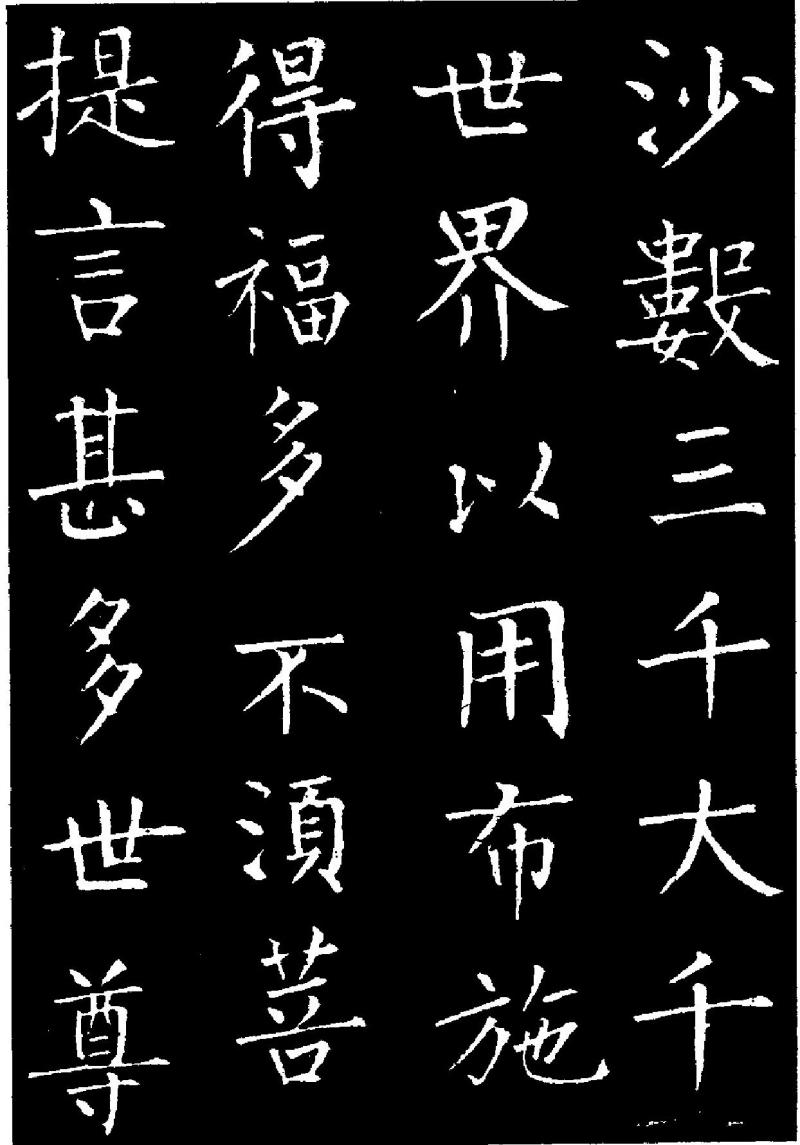 沙數三千大千
世界以用布施
得福多不湏菩
提言甚多世尊